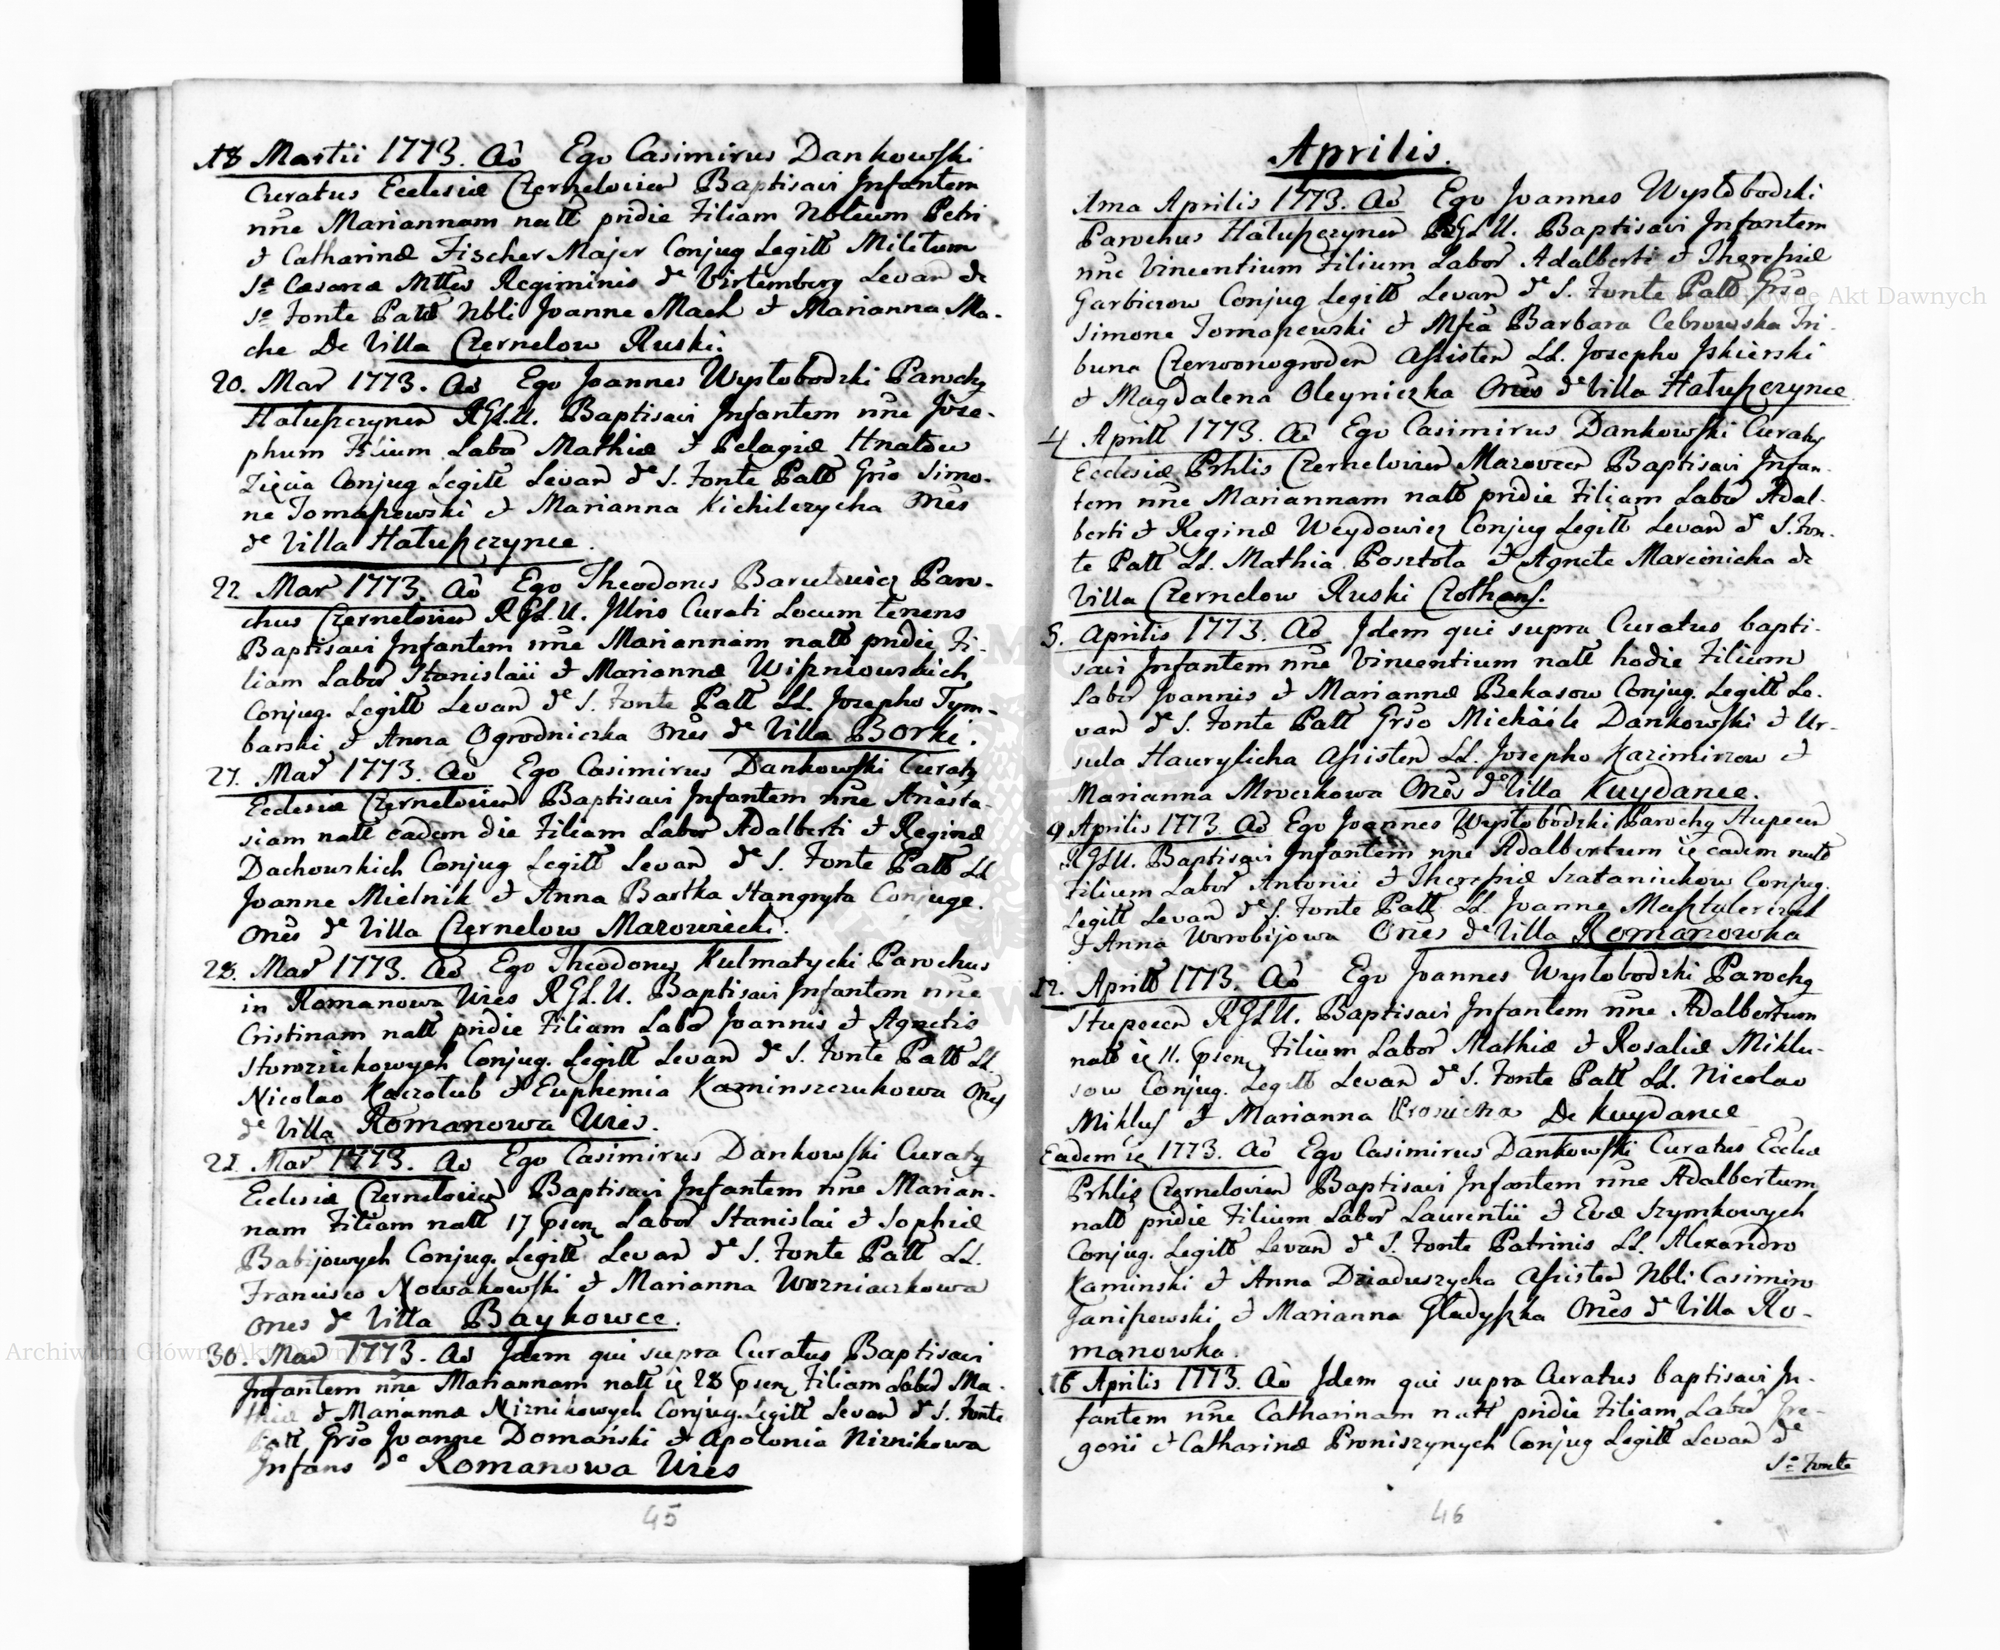 18 Martii 1773. Aô Ego Casimirus Dankowski
Curatus Ecclesiæ Czernelovien Baptisavi Infantem
nne Mariannam natt pridie Filiam Nblium Petri
& Catharinæ Fischer Majer Conjug Legitt Militum
Sæ Cæsareæ Mttes Regiminis de Virtemberg Levar de
So Fonte Patt Nbli Joanne Mach & Marianna Ma-
che De Villa Czernelow Ruski.
20. Mar 1773. Aô Ego Joannes Wyslobodzki Parochq
Hatuszczynen RGLU. Baptisavi Infantem nne Jose-
phum Filium Labor Mathiæ & Pelagiæ Hnatow
Zięcia Conjug Legitt Levar de S. Fonte Patt Grso Simo-
ne Tomaszewski & Marianna Kichilczycha Ones
de Villa Hatuszczynce.
22. Mar 1773. Aô Ego Theodorus Barutowicz Paro-
chus Czernelovien RGLU. Illris Curati Locum tenens
Baptisavi Infantem nne Mariannam natt pridie Fi-
liam Labor Stanislaii & Mariannæ Wiszniowskich
Conjug. Legitt Levar de S. Fonte Patt LL. Josepho Tym-
barski & Anna Ogrodniczka Ones de Villa Borki.
27. Mar 1773. Aô Ego Casimirus Dankowski Curatq
Ecclesiæ Czernelovien Baptisavi Infantem nne Anasta-
siam natt eadem die Filiam Labor Adalberti & Reginæ
Dachowskich Conjug Legitt Levar de S. Fonte Patt LL
Joanne Mielnik & Anna Bartka Stangryta Conjuge.
Ones de Villa Czernelow Mazowiecki.
28. Mar 1773. Aô Ego Theodorus Kulmatycki Parochus
in Romanowa Wies RGLU. Baptisavi Infantem nne
Cristinam natt pridie Filiam Labor Joannis & Agnetis
Stworzukowych Conjug. Legitt Levar de S. Fonte Patt LL.
Nicolao Kaczotub & Euphemia Kaminszczukowa Ones
de Villa Romanowa Wies.
Mar 1773. Aô Ego Casimirus Dankowski Curatq
Ecclesiæ Czernelovien Baptisavi Infantem nne Marian-
nam Filiam natt 17 psen Labor Stanislai & Sophiæ
Babijowych Conjug. Legitt Levar de S. Fonte Patt LL.
Francisco Nowakowski & Marianna Wozniaczkowa
Ones de Villa Baykowce.
30. Mar 1773. Aô Idem qui supra Curatus Baptisavi
Infantem nne Mariannam natt ię 28 psen Filiam Labor Ma-
thiæ & Mariannæ Niznikowych Conjug. Legitt Levar de S. Fonte
Patt Grso Joanne Domański & Apolonia Niznikowa
Infans de Romanowa Wies
45
Aprilis.
1ma Aprilis 1773. Aô Ego Joannes Wyslobodzki
Parochus Hatuszczynen RGLU. Baptisavi Infantem
nne Vincentium Filium Labor Adalberti & Theresiæ
Garbierow Conjug Legitt Levar de S. Fonte Patt Grso
Simone Tomaszewski & Mfca Barbara Cebrowska Tri-
buna Czerwonogroden Assisten LL. Josepho Iskierski
& Magdalena Oleyniczka Ones de Villa Hatuszczynce
4 Aprill 1773. Aô Ego Casimirus Dankowski Curatq
Ecclesiæ Prhlis Czernelovien Mazovien Baptisavi Infan-
tem nne Mariannam natt pridie Filiam Labor Adal-
berti & Reginæ Weydowicz Conjug Legitt Levar de S. Fon-
te Patt LL. Mathia Posztola & Agnete Marcinicha de
Villa Czernelow Ruski
5. Aprilis 1773. Aô Idem qui supra Curatus bapti-
savi Infantem nne Vincentium natt hodie Filium
Labor Joannis & Mariannæ Bekasow Conjug. Legitt Le-
var de S. Fonte Patt Grso Michaele Dankowski & Ur-
sula Hawrylicha Assisten LL. Josepho Kazimirzow &
Marianna Mroczkowa Ones de Villa Kuydance.
9 Aprilis 1773. Aô Ego Joannes Wyslobodzki Parochq Stupecen
RGLU. Baptisavi Infantem nne Adalbertum ię eadem natt
Filium Labor Antonii & Theresiæ Szataniukow Conjug.
Legitt Levar de S. Fonte Patt LL. Joanne Masztalerczuk
& Anna Worobijowa Ones de Villa Romanowka
12. Aprill 1773. Aô Ego Joannes Wyslobodzki Parochq
Stupecen RGLU. Baptisavi Infantem nne Adalbertum
natt ię 11. psen Filium Labor Mathiæ & Rosaliæ Miklu-
sow Conjug. Legitt Levar de S. Fonte Patt LL. Nicolao
Miklus & Marianna De Kuydance
Eadem ię 1773. Aô Ego Casimirus Dankowski Curatus Eccleæ
Prhlis Czernelovien Baptisavi Infantem nne Adalbertum
natt pridie Filium Labor Laurentii & Evæ Szymkowych
Conjug. Legitt Levar de S. Fonte Patrinis LL. Alexandro
Kaminski & Anna Dziaduszycha Assisten Nbli Casimiro
Janiszewski & Marianna Gładyszka Ones de Villa Ro-
manowka.
16 Aprilis 1773. Aô Idem qui supra Curatus baptisavi In-
fantem nne Catharinam natt pridie Filiam Labor Gre-
gorii & Catharinæ Proniszynych Conjug Legitt Levar de
So Fonte
46
Archiwum Główne Akt Dawnych